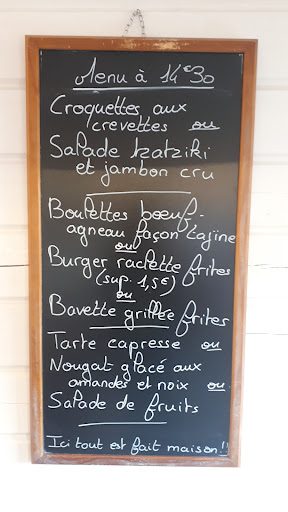 Menu à 14€30
Croquettes aux
crevettes ou
Salade tzatziki
et jambon cru
Boulettes bœuf-
agneau façon tajine
ou
Burger raclette frites
(sup. 1,5€)
ou
Bavette grillée frites
Tarte capresse ou
Nougat glacé aux
amandes et noix ou
Salade de fruits
Ici tout est fait maison!!